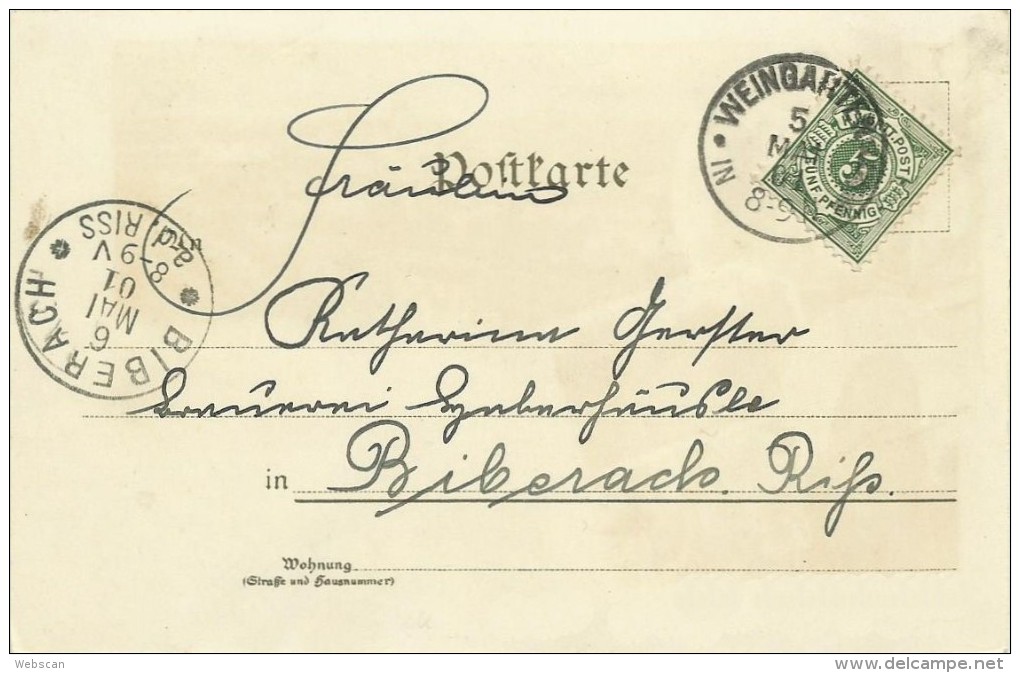 Postkarte
WEINGARTEN
5
8-9
K.WÜRT.POST
FÜNF PFENNIG
5
Fräulein
Katharina Gerster
Brauerei Haberhäusle
in Biberach. Riß.
BIBERACH
a-d.
RISS
8-9V
6
MAI
01
Wohnung
(Straße und Hausnummer)
Webscan
www.delcampe.net